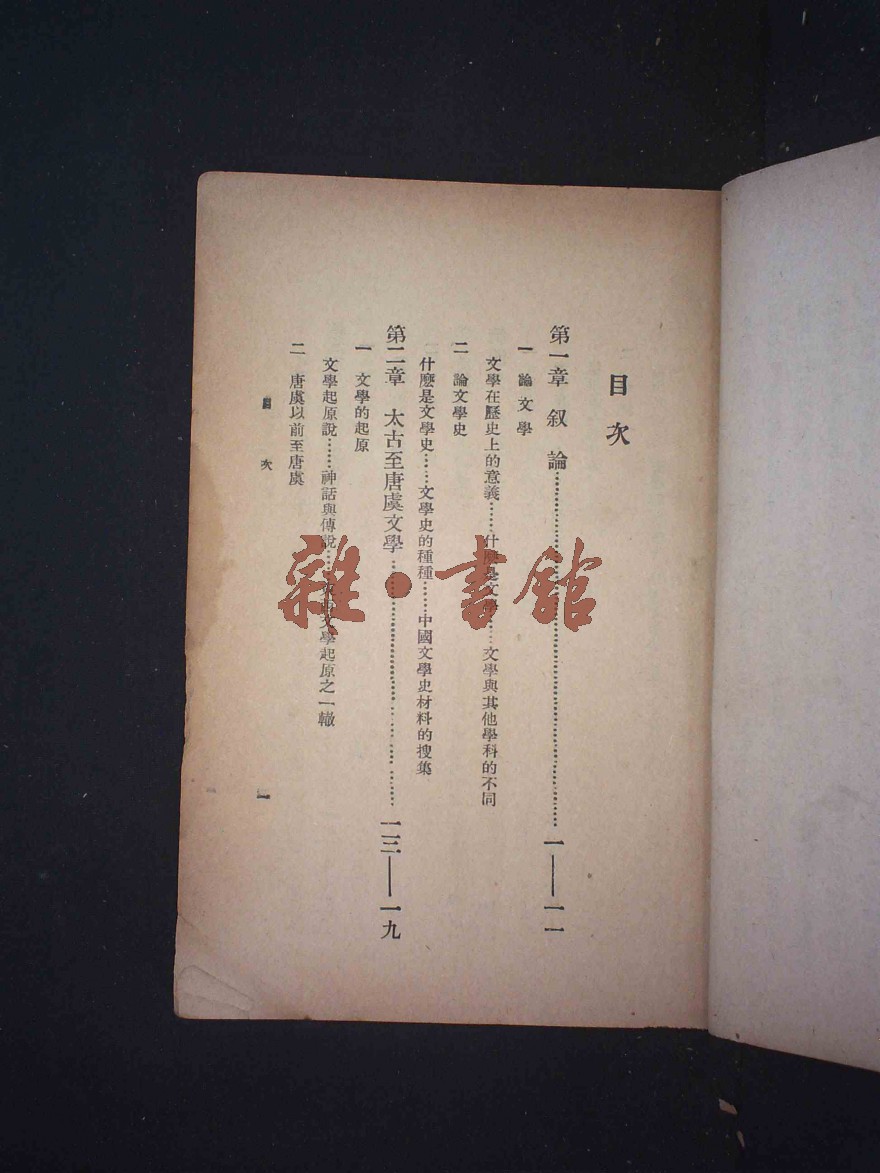 目次
第一章 叙論……………………一——一一
一 論文學
文學在歷史上的意義……什麼是文學……文學與其他學科的不同
二 論文學史
什麼是文學史……文學史的種種……中國文學史材料的搜集
第二章 太古至唐虞文學……………………一三——一九
一 文學的起原
文學起原說……神話與傳說……文學起原之一轍
二 唐虞以前至唐虞
目次
一
雜·書館